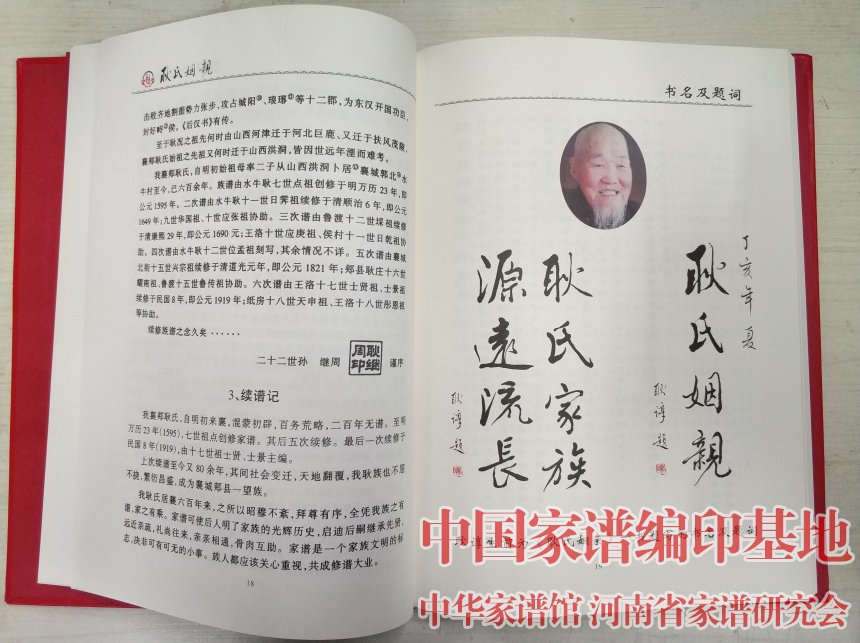 耿氏姻親
击败齐地割据势力张步，攻占城阳⑯、琅琊⑰等十二郡，为东汉开国功臣，
封好畤侯。《后汉书》有传。
至于耿况之祖先何时由山西河津迁于河北巨鹿、又迁于扶风茂陵，
襄郏耿氏始祖之先祖又何时迁于山西洪洞，皆因世远年湮而难考。
我襄郏耿氏，自明初始祖母率二子从山西洪洞卜居襄城郭北水
牛村至今，已六百余年。族谱由水牛耿七世点祖创修于明万历23年，即
公元1595年。二次谱由水牛耿十一世日霁祖续修于清顺治6年，即公元
1649年；九世华国祖、十世应张祖协助。三次谱由鲁渡十二世埰祖续修
于清康熙29年，即公元1690元；王洛十世应庚祖、侯村十一世日乾祖协
助。四次谱由水牛耿十二世位孟祖刻写，其余情况不详。五次谱由襄城
北街十五世兴宗祖续修于清道光元年，即公元1821年；郏县耿庄十六世
耀南祖、鲁渡十五世鲁传祖协助。六次谱由王洛十七世士贤祖、士景祖
续修于民国8年，即公元1919年；纸房十八世天申祖、王洛十八世彤恩祖
等协助。
续修族谱之念久矣……
二十二世孙 继周 耿继周印 谨序
3、续谱记
我襄郏耿氏，自明初来襄，混蒙初辟，百务荒略，二百年无谱。至明
万历23年(1595)，七世祖点创修家谱。其后五次续修。最后一次续修于
民国8年(1919)，由十七世祖士贤、士景主编。
上次续谱至今又80余年，其间社会变迁，天地翻覆，我耿族也不屈
不挠，繁衍昌盛，成为襄城郏县一望族。
我耿氏居襄六百年来，之所以昭穆不紊，拜尊有序，全凭我族之有
谱，家之有乘。家谱可使后人明了家族的光辉历史，启迪后嗣继承先贤，
远近亲疏，礼尚往来，亲亲相通，骨肉互助。家谱是一个家族文明的标
志，决非可有可无的小事。族人都应该关心重视，共成修谱大业。
18
书名及题词
丁亥年夏
耿氏姻親
耿谆题
耿氏家族
源遠流長
耿谆题
书名及题词
19
中国家谱编印基地
中华家谱馆 河南省家谱研究会